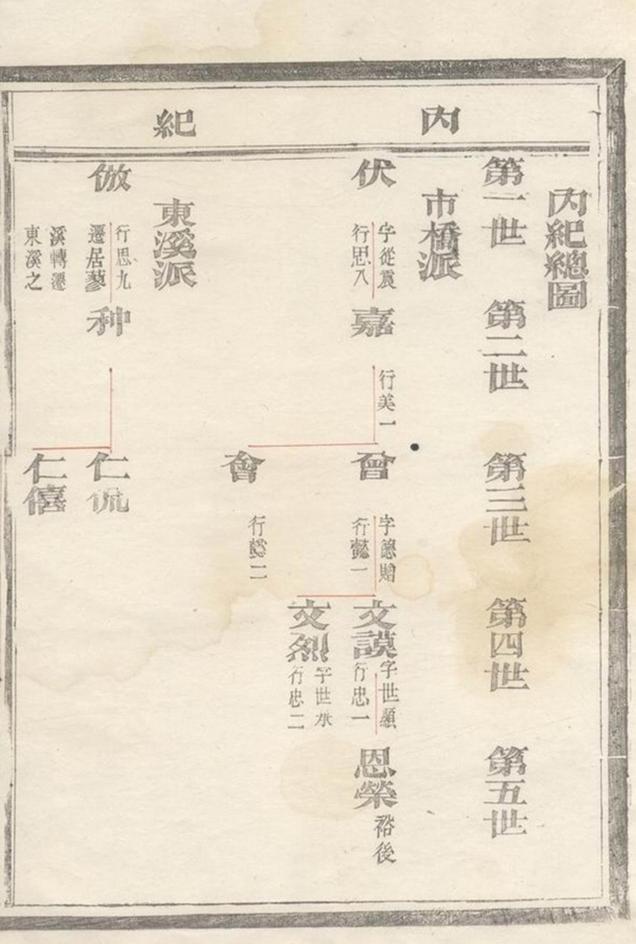 內紀
內紀總圖
第一世
第二世
第三世
第四世
第五世
市橋派
伏
字從震
行思八
嘉
行美一
曾
字德贈
行懿一
文謨
字世顯
行忠一
恩榮
裕後
文烈
字世承
行忠二
會
行懿二
東溪派
倣
行思九
遷居蓼
溪轉遷
東溪之
种
仁侃
仁僖